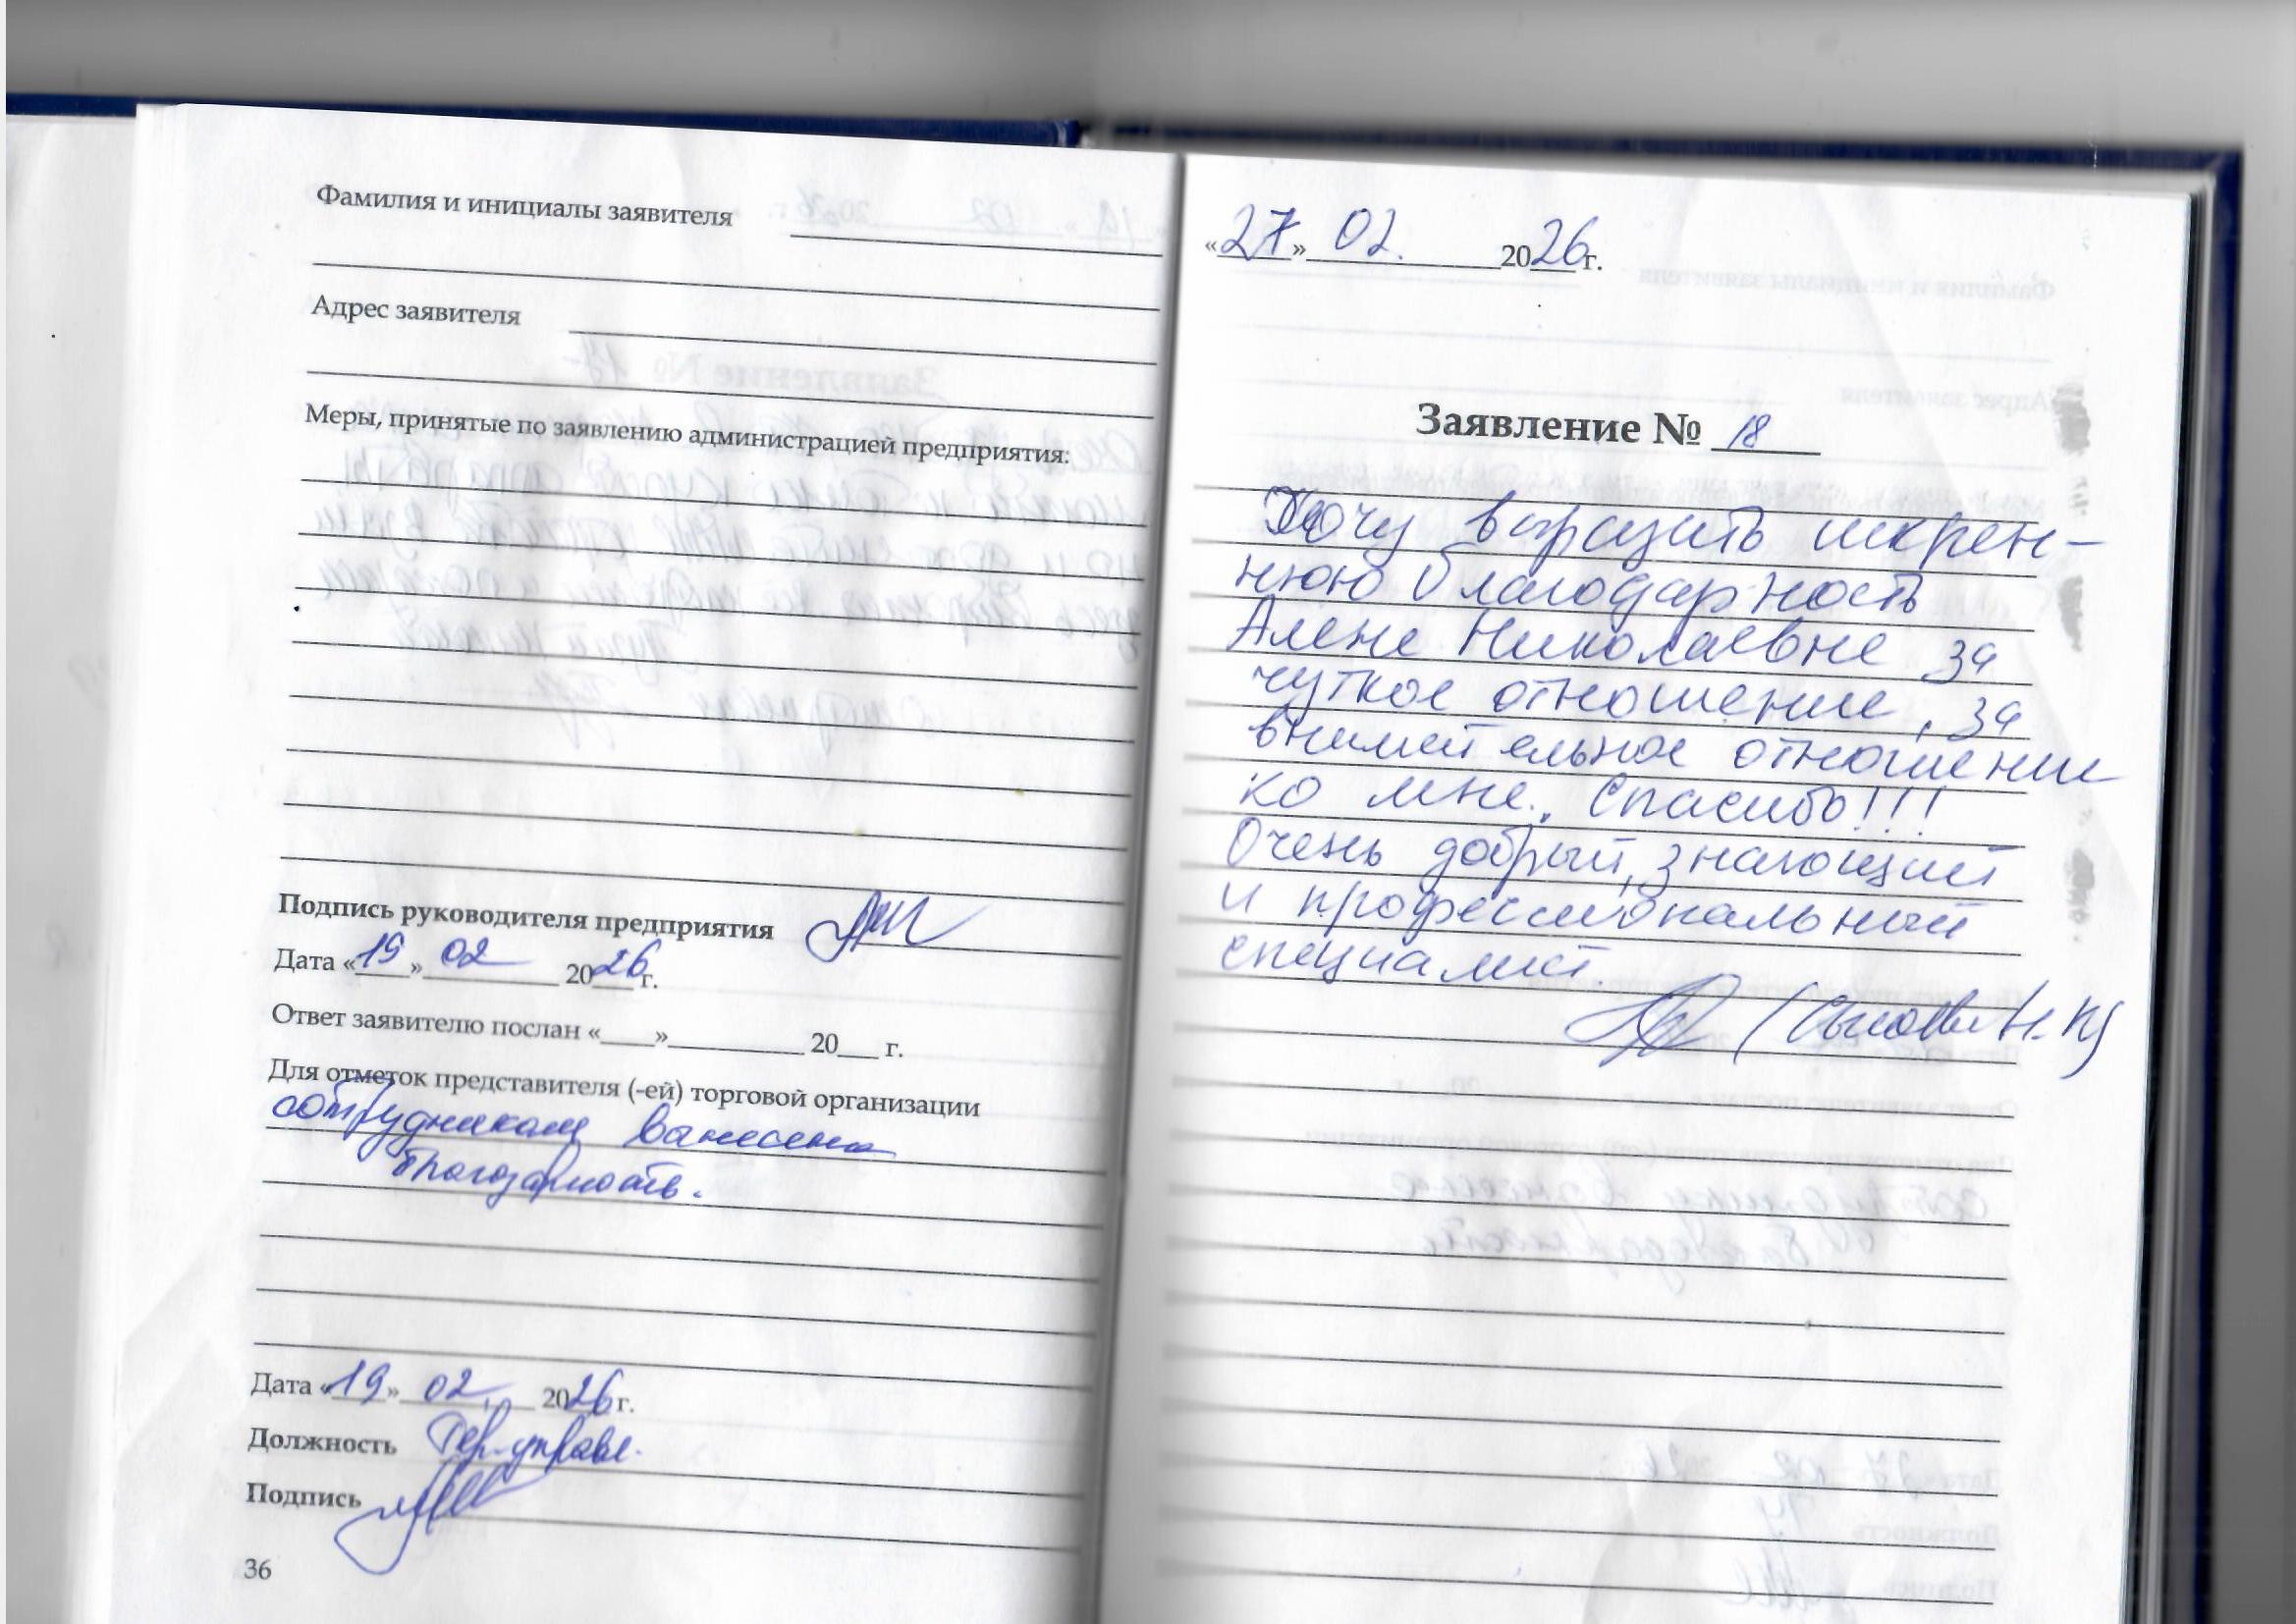 Фамилия и инициалы заявителя
Адрес заявителя
Меры, принятые по заявлению администрацией предприятия:
Подпись руководителя предприятия
Дата «19» 02 2026 г.
Ответ заявителю послан «____»__________ 20___ г.
Для отметок представителя (-ей) торговой организации
сотрудникам вынесена
благодарность.
Дата «19» 02. 2026 г.
Должность Тер. управл.
Подпись
36
«27» 02. 2026 г.
Заявление № 18
Хочу выразить искрен-
нюю благодарность
Алене Николаевне за
чуткое отношение, за
внимательное отношение
ко мне. Спасибо!!!
Очень добрый, знающий
и профессиональный
специалист.